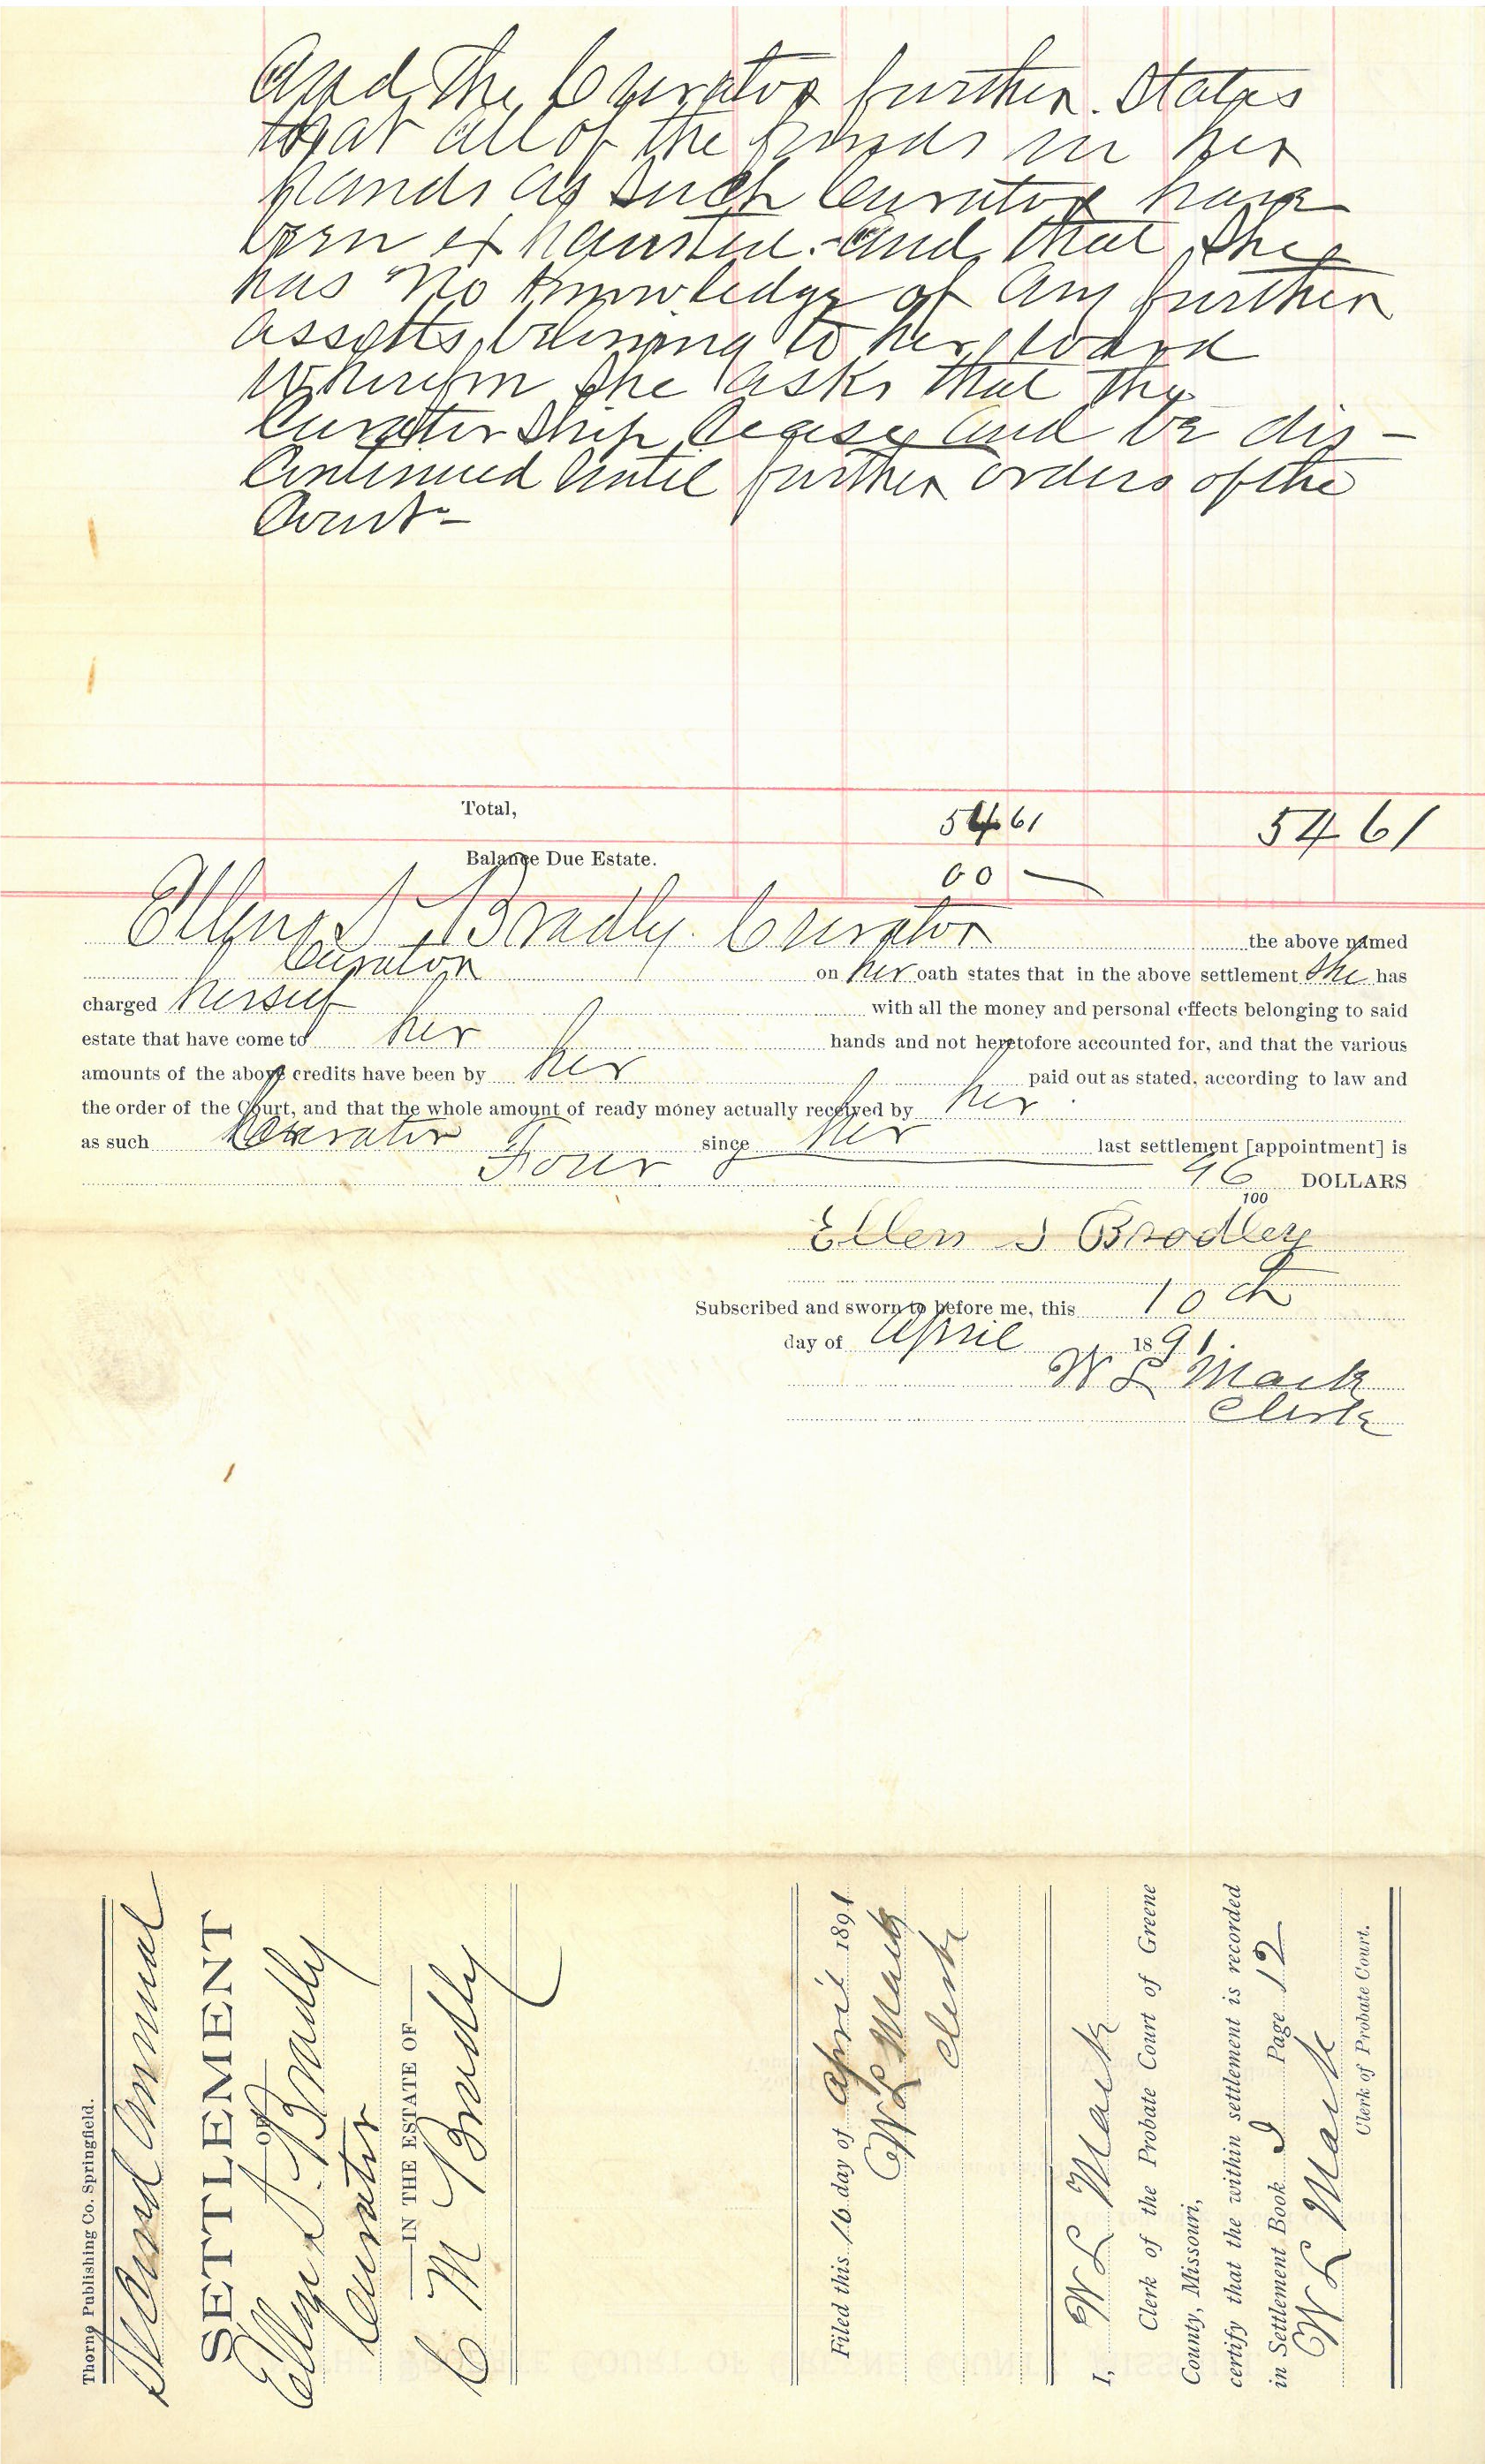 And the Curator further States
that all of the funds in her
hands as such Curator have
been exhausted. and that she
has no knowledge of any further
assetts belonging to her ward
Wherefore she asks that the
Curatorship cease and be dis-
continued until further orders of the
Court-
Total, 54 61 54 61
Balance Due Estate. 00
Ellen S. Bradly. Curator the above named
Curator on her oath states that in the above settlement She has
charged herself with all the money and personal effects belonging to said
estate that have come to her hands and not heretofore accounted for, and that the various
amounts of the above credits have been by her paid out as stated, according to law and
the order of the Court, and that the whole amount of ready money actually received by her
as such Curator since her last settlement [appointment] is
Four 96/100 DOLLARS
Ellen S Bradley
Subscribed and sworn to before me, this 10th
day of April 1891.
W L Mack
Clerk
Thorne Publishing Co. Springfield.
Second Annual
SETTLEMENT
OF
Ellen S. Bradly
Curator
IN THE ESTATE OF
C M Bradly
Filed this 16 day of April 1891
W L Mack
Clerk
I, W L Mack
Clerk of the Probate Court of Greene
County, Missouri,
certify that the within settlement is recorded
in Settlement Book I Page 12
W L Mack
Clerk of Probate Court.